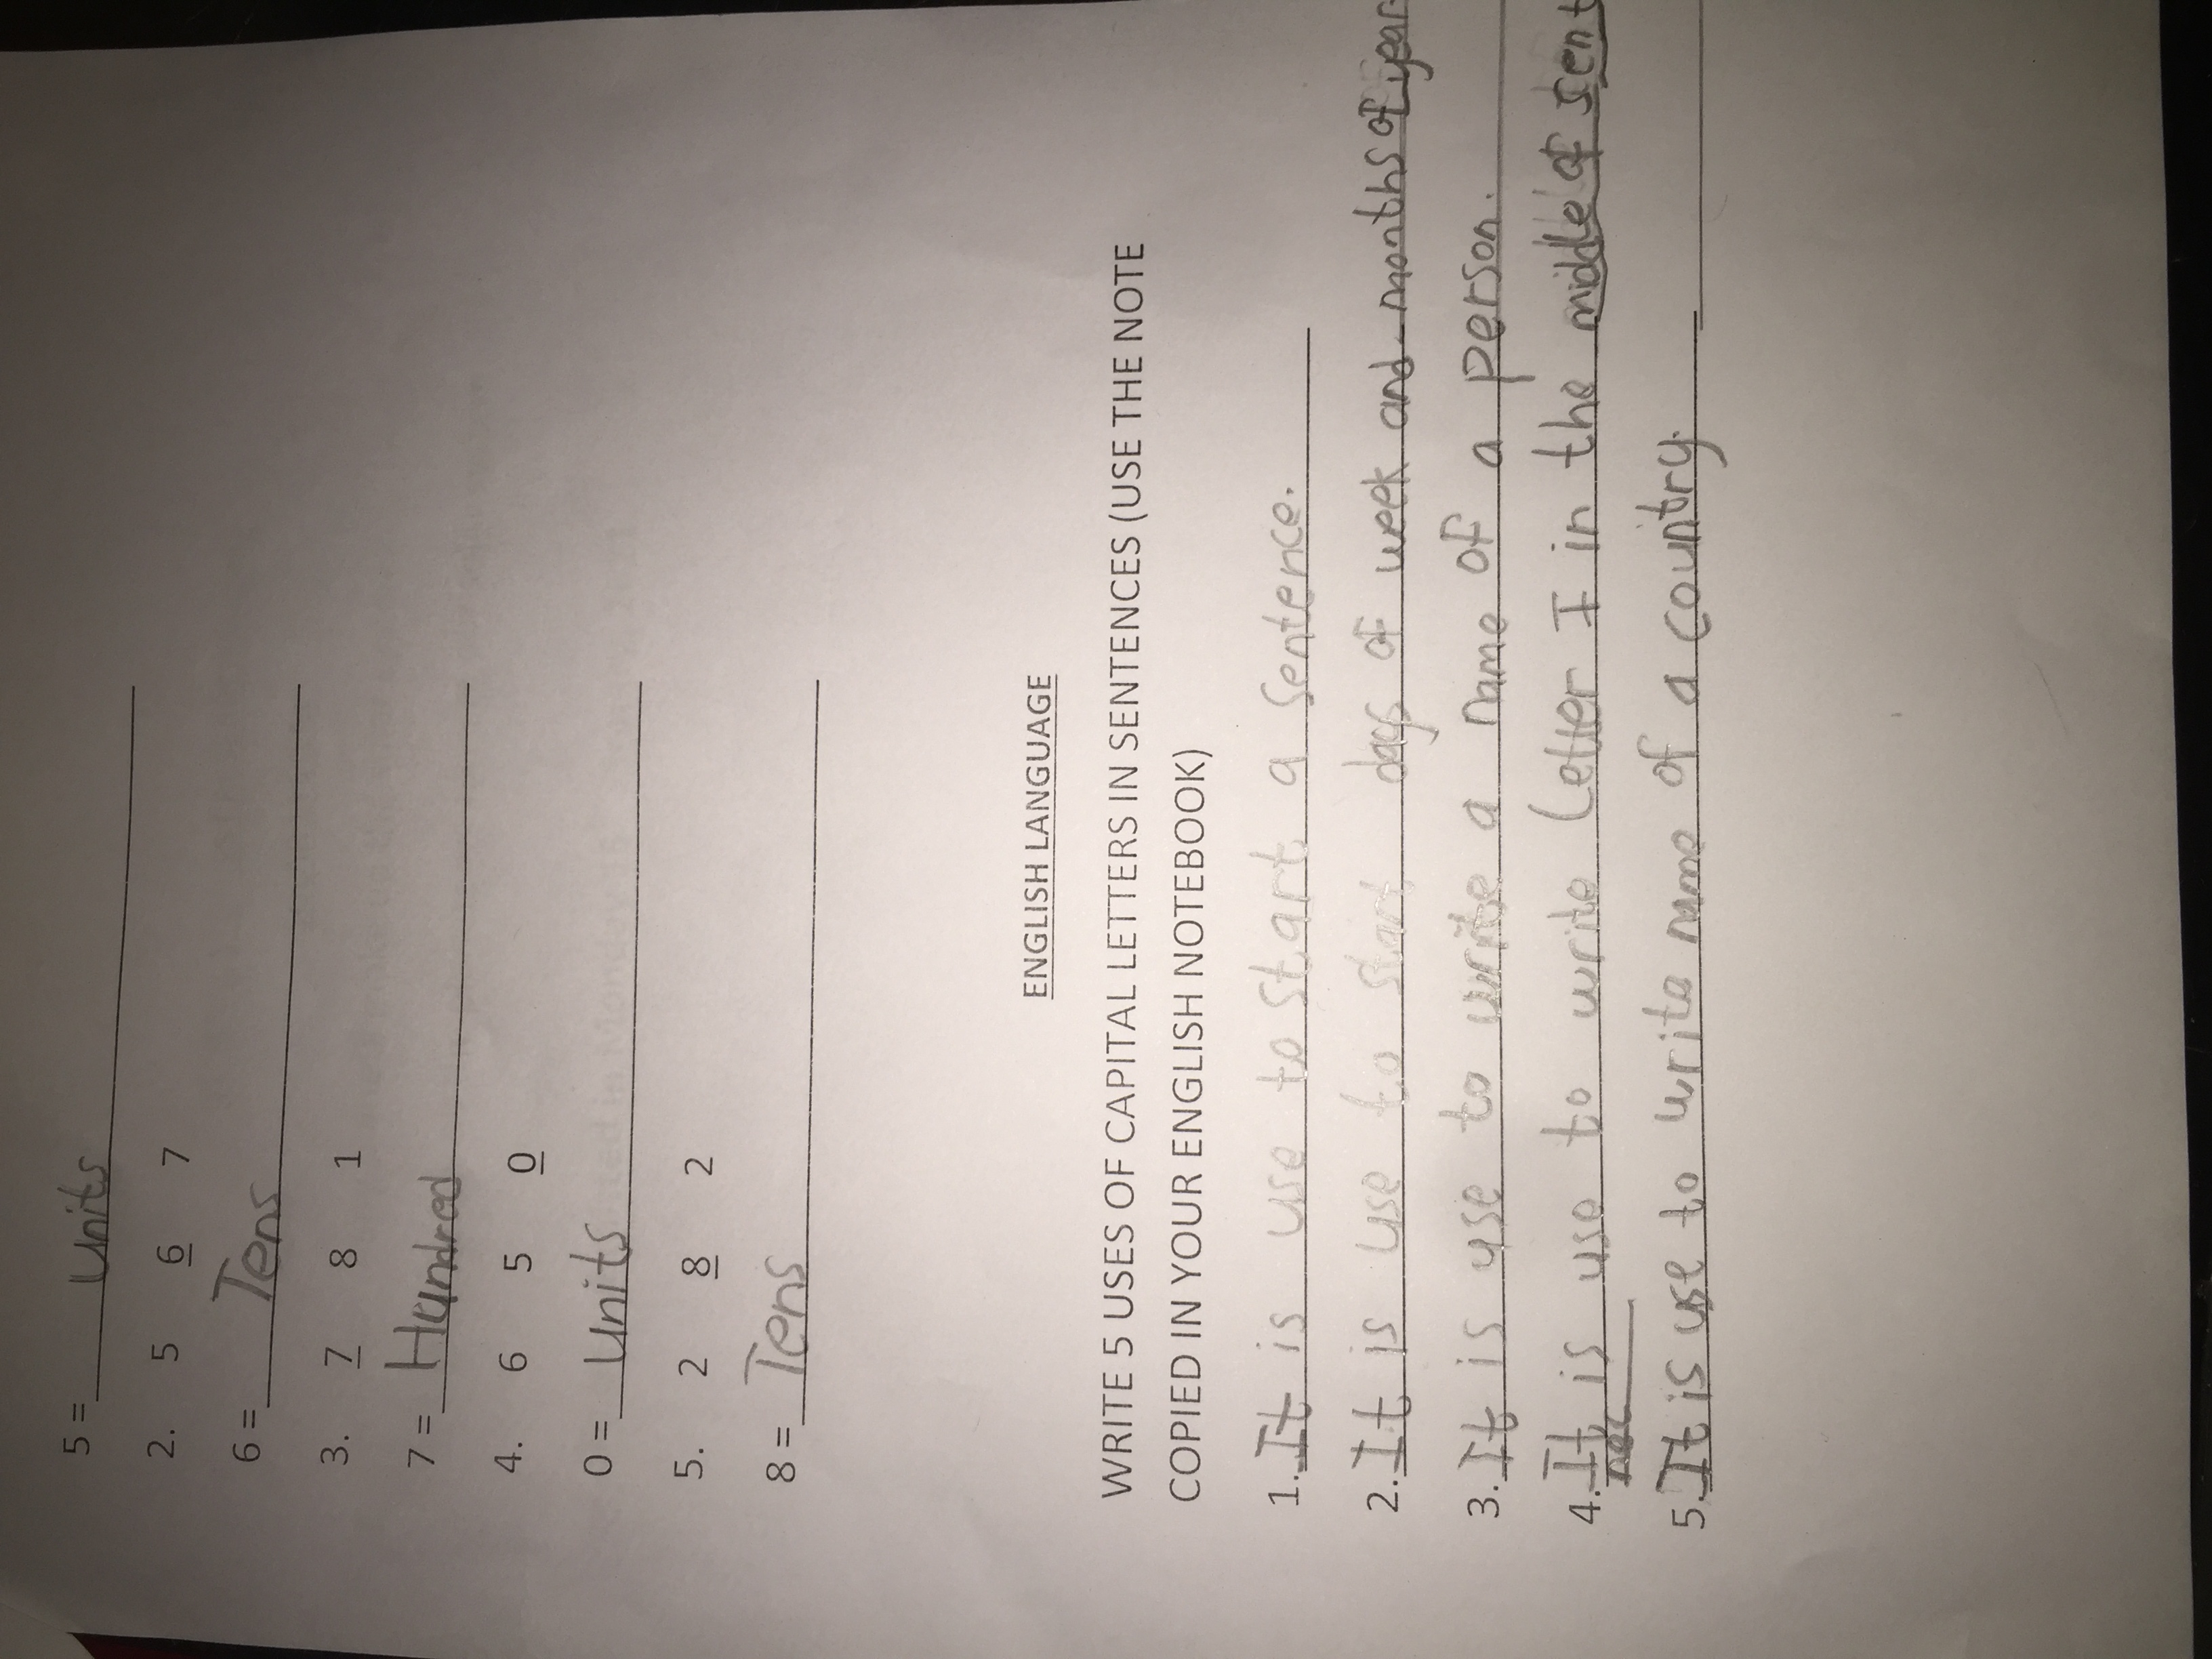 5 = Units
2. 5 6 7
6 = Tens
3. 7 8 1
7 = Hundred
4. 6 5 0
0 = Units
5. 2 8 2
8 = Tens
ENGLISH LANGUAGE
WRITE 5 USES OF CAPITAL LETTERS IN SENTENCES (USE THE NOTE
COPIED IN YOUR ENGLISH NOTEBOOK)
1. It is use to start a sentence.
2. It is use to start days of week and months of year
3. It is use to write a name of a person.
4. It is use to write letter I in the middle of sent
5. It is use to write name of a country.